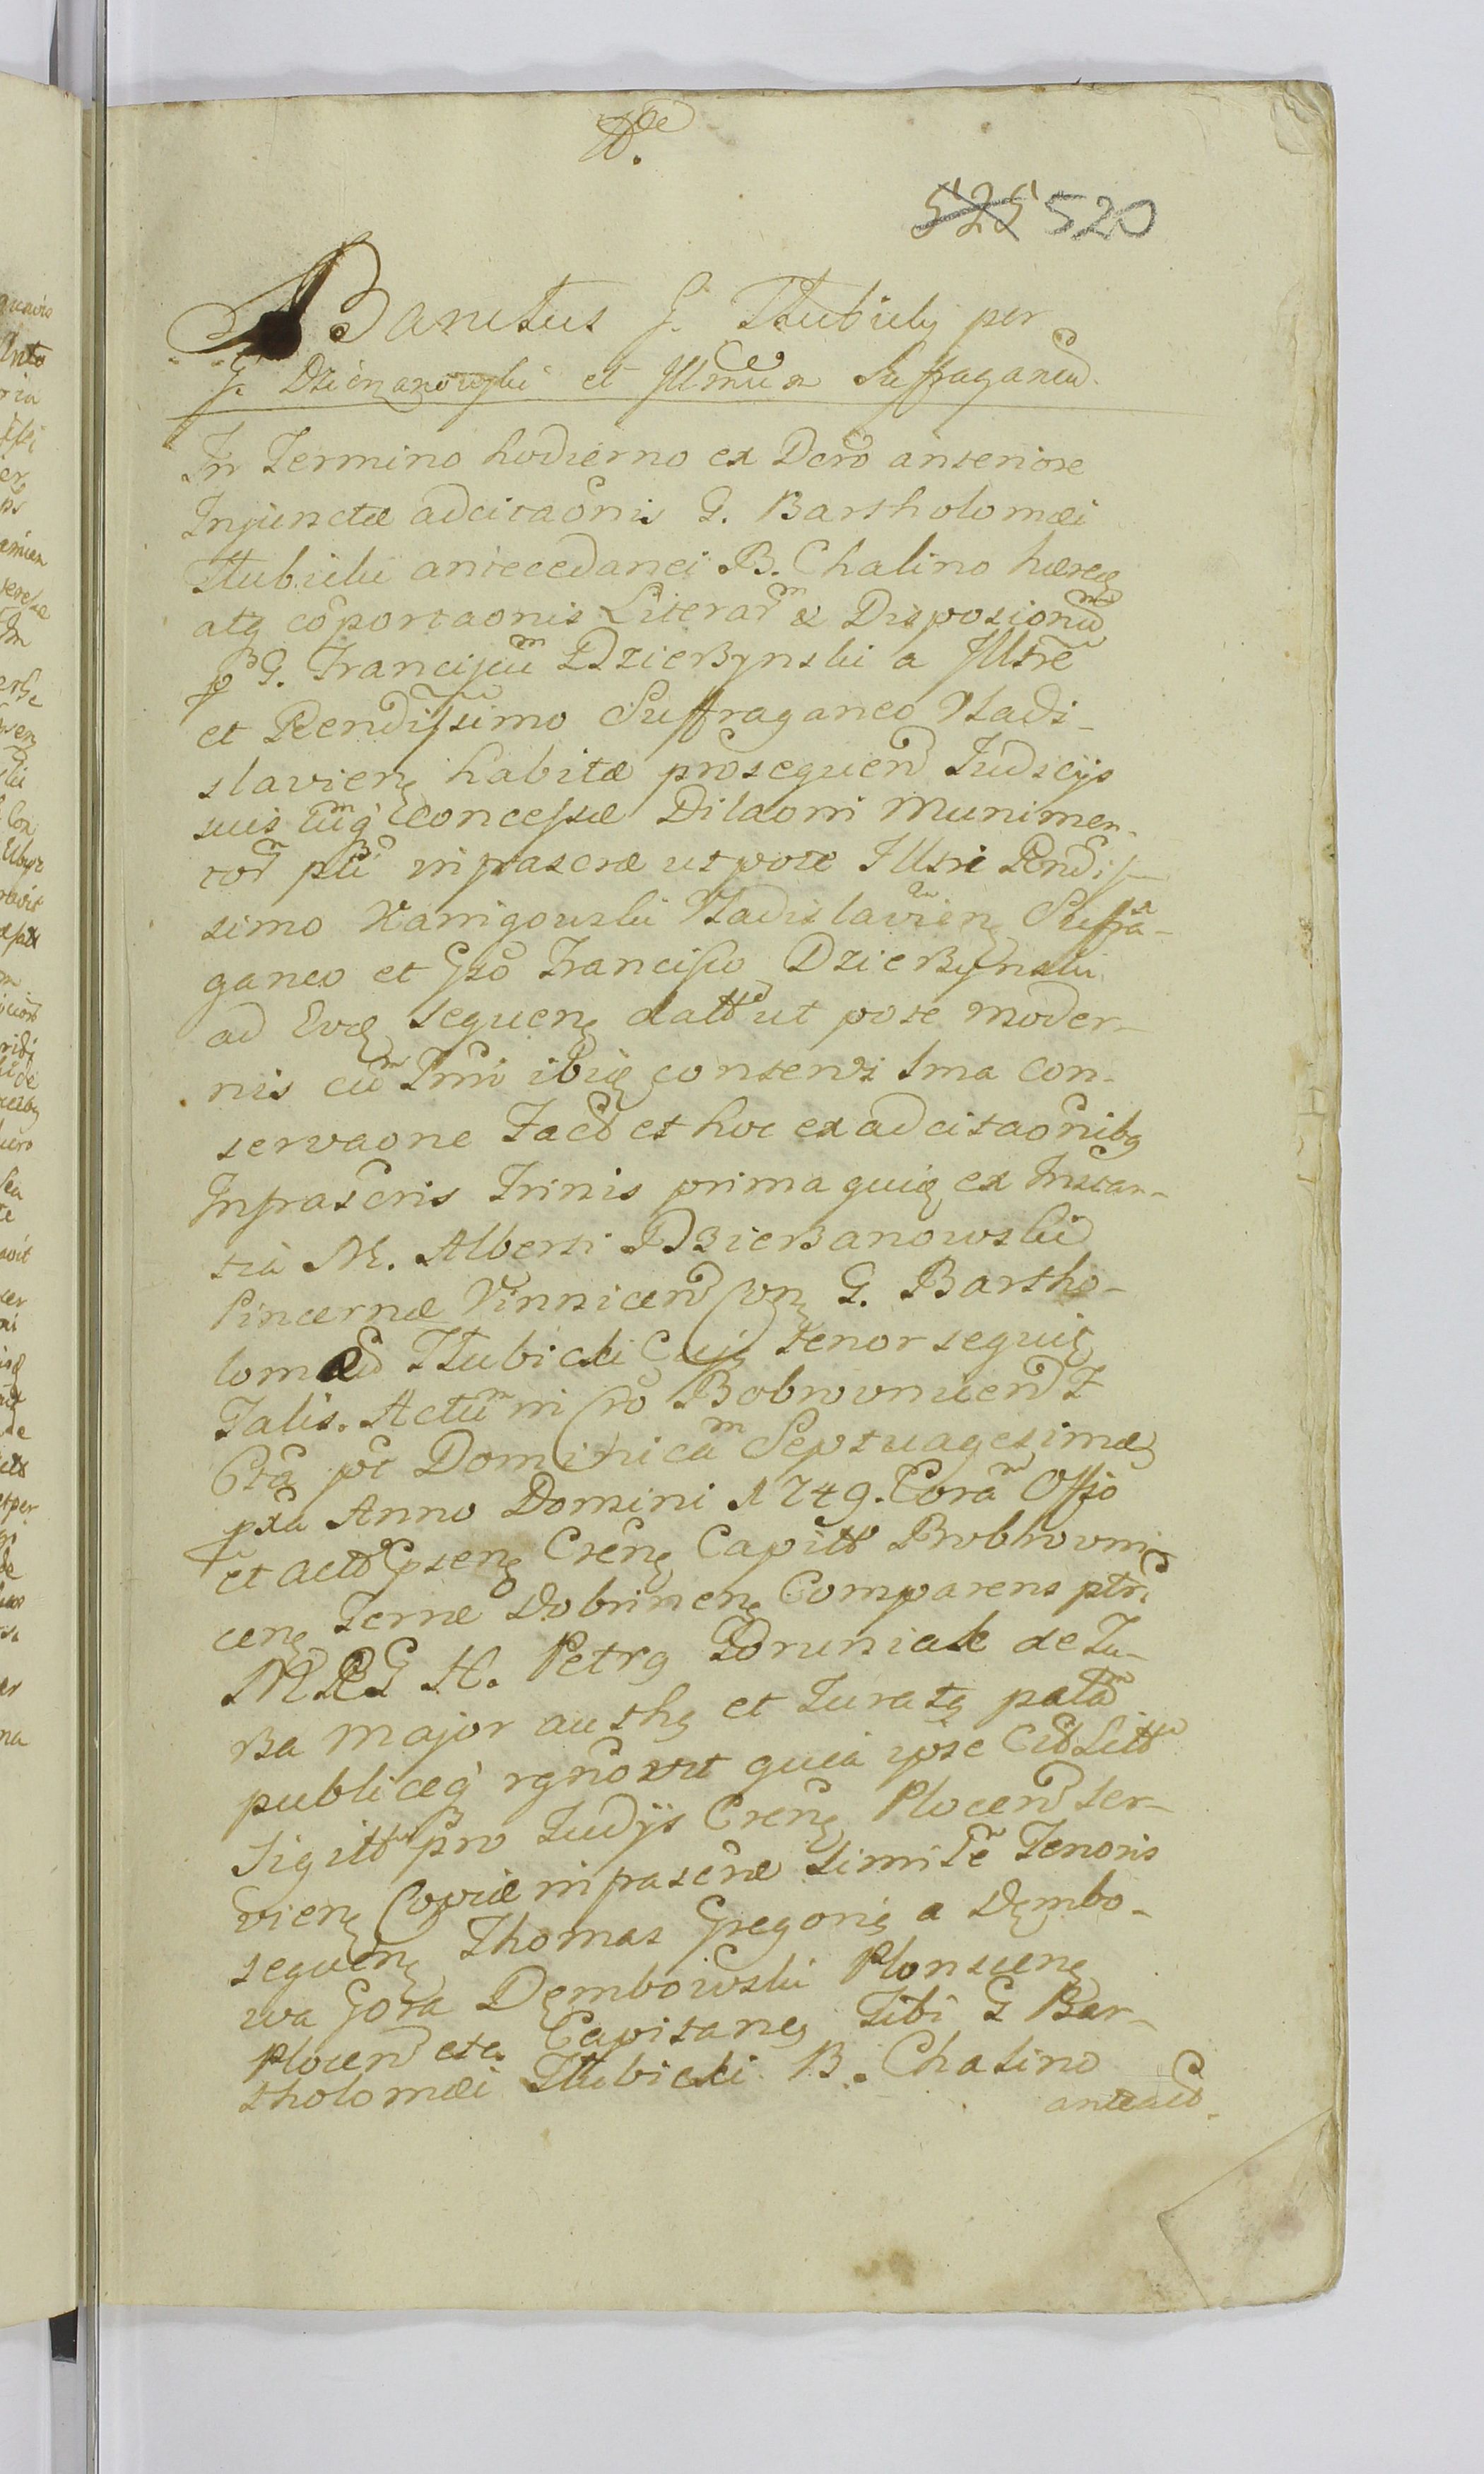 525 520
Banitus G. Tłubicki per
G. Dzierzanowski et Illmum Suffraganeu
In Termino hodierno ex Dcro anteriore
Injunctæ adcitaonis G. Bartholomæi
Tłubicki antecedanei B. Chalino hæredē
atq comportaonis Literarum & Dispositionum
p G. Franciscum Dzierzynski a Illstre
et Rendissimo Suffraganeo Vladi-
slavien habitæ prosequen Judicijs
suis concessæ Dilaoni Munimen-
tor infrascræ utpote Illsri Rendis-
simo Kanigowski Vladislavien Suffra-
ganeo et Gso Francisco Dzierzynski
ad sequen datt ut pote moder-
nis cum ibid contenti Ima con-
servaone Facd et hoc ex adcitaonibq
Infrascris Trinis prima quid ex Instan-
tia M. Alberti Dzierzanowski
Pincernæ Vinnicen Con G. Bartho-
lomæum Tłubicki Cujq tenor sequit
Talis. Actum in Cro Bobrovnicen F
pt Dominicam Septuagesimæ
pxa Anno Domini 1749. Coram Offo
et actis psen Cren Capitt Bobrovni-
cen Terræ Dobrinen Comparens
M. Petrg Goruniak de Lu-
Ba Major authq et Juratq palam
publiceq rgnovit quia ipse
Sigitt pro Judijs Cren Plocen ser-
vien Copiæ infrascræ simil Tenoris
sequen Thomas Gregorig a Dembo-
wa Gora Dembowski Plonscen
Plocen etc. Capitaneg Tibi G Bar-
tholomæi Tłubicki B. Chalino
anteced